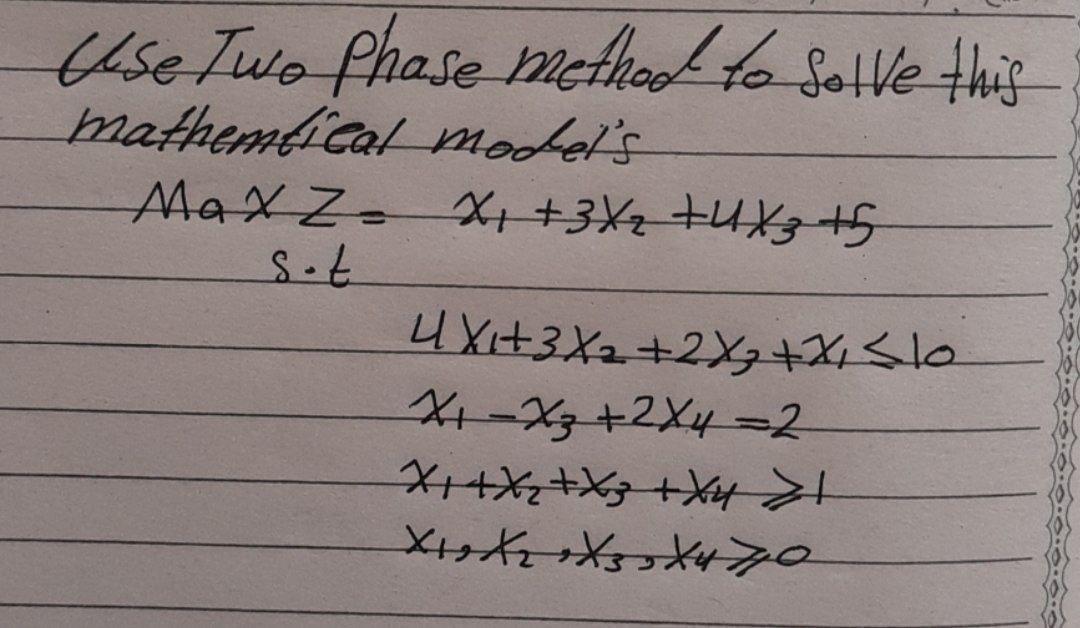 Use Two Phase method to Solve this
mathemtical model's
Max Z = x₁ + 3x₂ + 4x₃ + 5
s.t
4x₁ + 3x₂ + 2x₃ + x₁ ≤ 10
x₁ - x₃ + 2x₄ = 2
x₁ + x₂ + x₃ + x₄ ≥ 1
x₁, x₂, x₃, x₄ ≥ 0